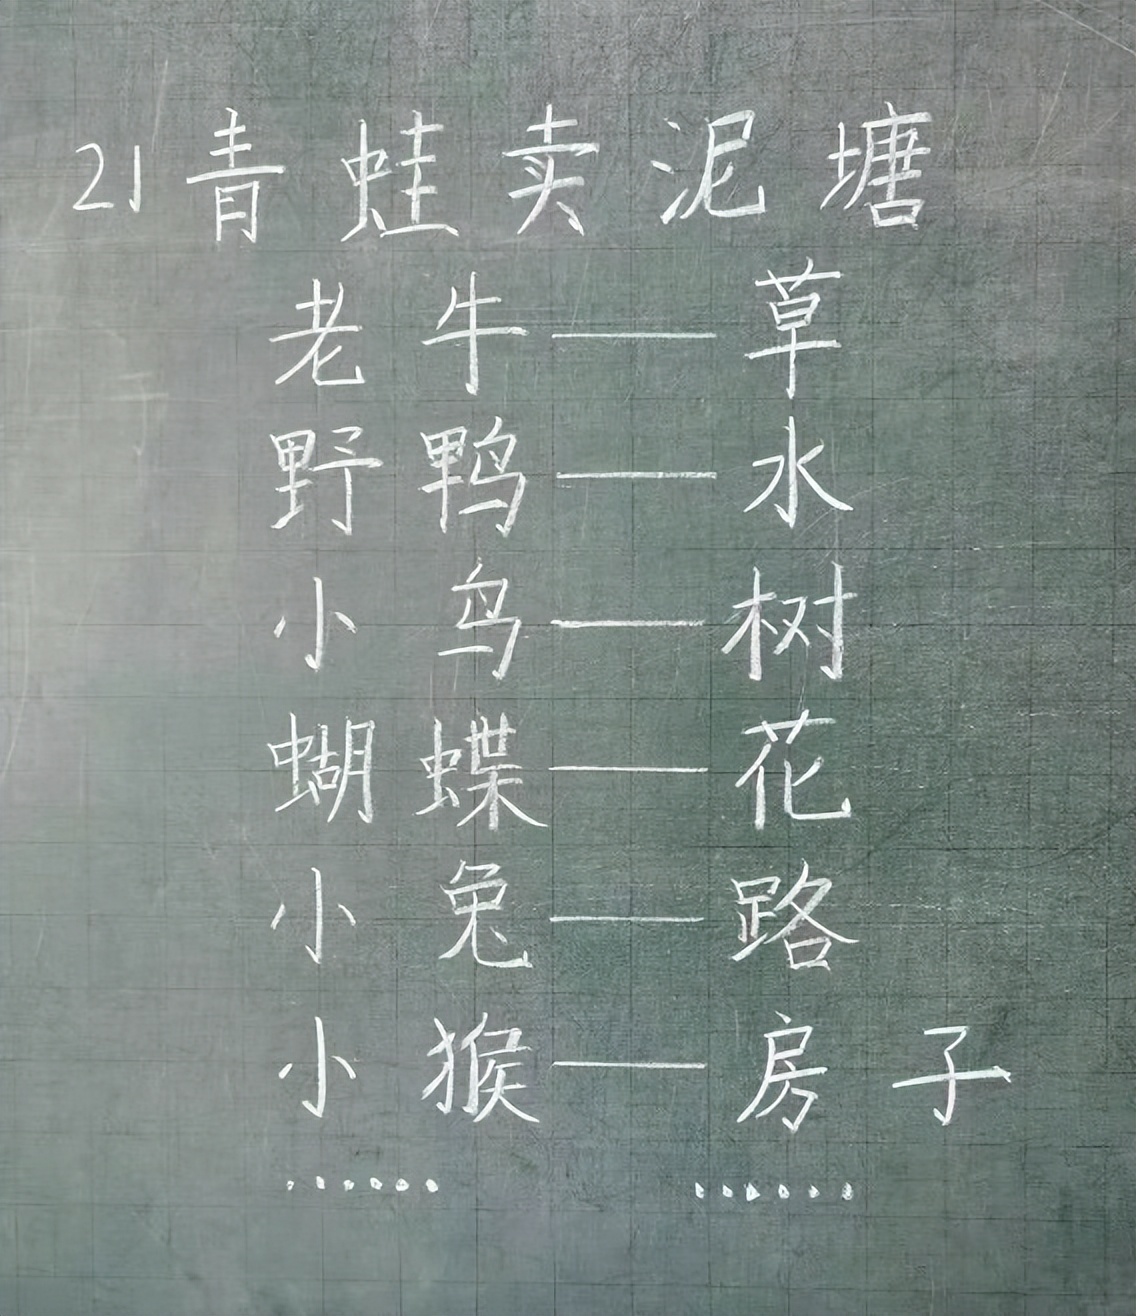 21 青蛙卖泥塘
老牛——草
野鸭——水
小鸟——树
蝴蝶——花
小兔——路
小猴——房子
…… ……